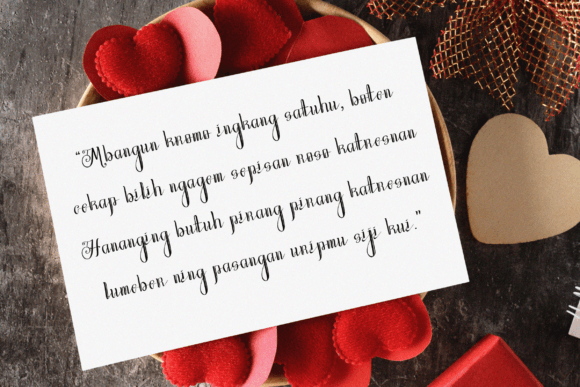 “Mbangun kromo ingkang satuhu, boten
cekap bilih ngagem sepisan roso katresnan
Hananging butuh pinang pinang katresnan
lumeber ning pasangan uripmu siji kui.”